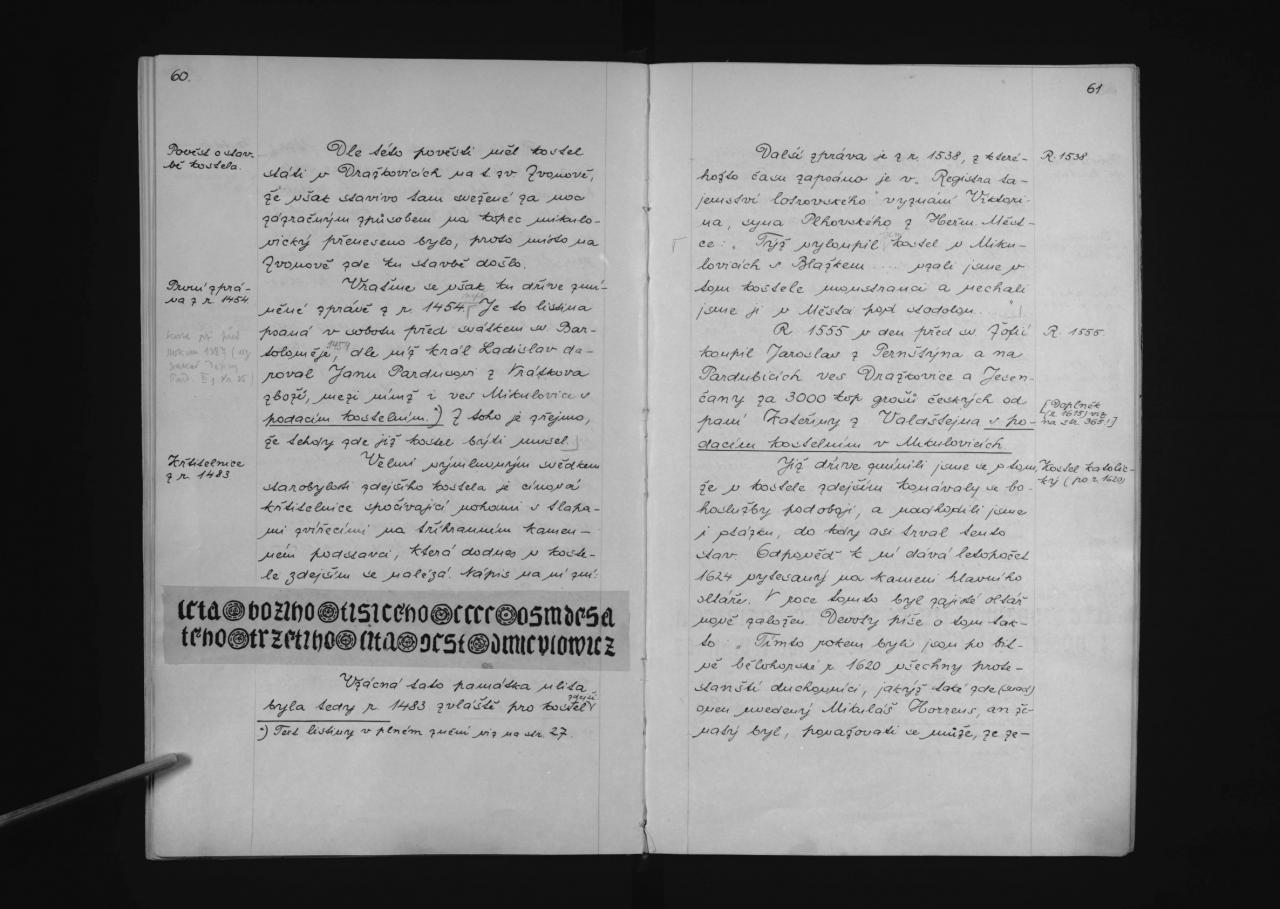 60.
Pověst o stav-
bě kostela.
Dle této pověsti měl kostel
státi v Dražkovicích na t. zv. Zvonově,
že však stavivo tam svežené za noci
zázračným způsobem na kopec mikulo-
vický přeneseno bylo, proto místo na
Zvonově zde ku stavbě došlo.
První zprá-
va z r. 1454
Vraťme se však ku dříve zmí-
něné zprávě z r. 1454. Je to listina
psaná v sobotu před svátkem sv. Bar-
toloměje, 1454 dle níž král Ladislav da-
roval Janu Pardusovi z Vrátkova
zboží, mezi nímž i ves Mikulovice s
podacím kostelním.*) Z toho je zřejmo,
že tehdy zde již kostel býti musel.
Křtitelnice
z r. 1483
Velmi výmluvným svědkem
starobylosti zdejšího kostela je cínová
křtitelnice spočívající nohami s tlapa-
mi zvířecími na tříhranném kamen-
ném podstavci, která dodnes v koste-
le zdejším se nalézá. Nápis na ní zní:
leta božiho tisiceho cccc osmdesa
teho trzetiho lita gest dmicvlowicz
Vzácná tato památka ulita
byla tedy r. 1483 zvláště pro kostel zdejší.
*) Text listiny v plném znění viz na str. 27.
61
Další zpráva je z r. 1538, z které-
hožto času zapsáno je v „Registra ta-
jemství lotrovského" vyznání Viktori-
na, syna Plhovského z Heřm. Měst-
ce: „Týž vyloupil kostel v Miku-
lovicích s Blažkem .... vzali jsme v
tom kostele monstranci a nechali
jsme ji v Města pod stodolou..."
R. 1538
R. 1555 v den před sv. Žofií
koupil Jaroslav z Pernštýna a na
Pardubicích ves Dražkovice a Jesen-
čany za 3000 kop grošů českých od
paní Kateřiny z Valdštejna s po-
dacím kostelním v Mikulovicích.
R. 1555.
[Doplněk
(r. 1615) viz
na str. 365!]
Již dříve zmínili jsme se o tom,
že v kostele zdejším konávaly se bo-
hoslužby podobojí, a nadhodili jsme
i otázku, do kdy asi trval tento
stav. Odpověď k ní dává letopočet
1624 vytesaný na kameni hlavního
oltáře. V roce tomto byl zajisté oltář
nově založen. Devoty píše o tom tak-
to: „Tímto rokem byli jsou po bit-
vě bělohorské r. 1620 všechny prote-
stanští duchovníci, jakýž také zde (snad)
onen uvedený Mikuláš Horreus, an že-
natý byl, považovati se může, ze ze-
Kostel katolic-
ký (po r. 1620)